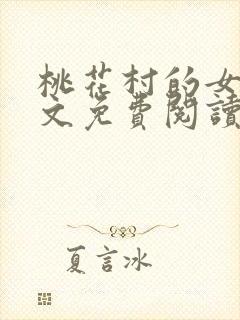 桃花村的女
文免費閱讀
夏言冰